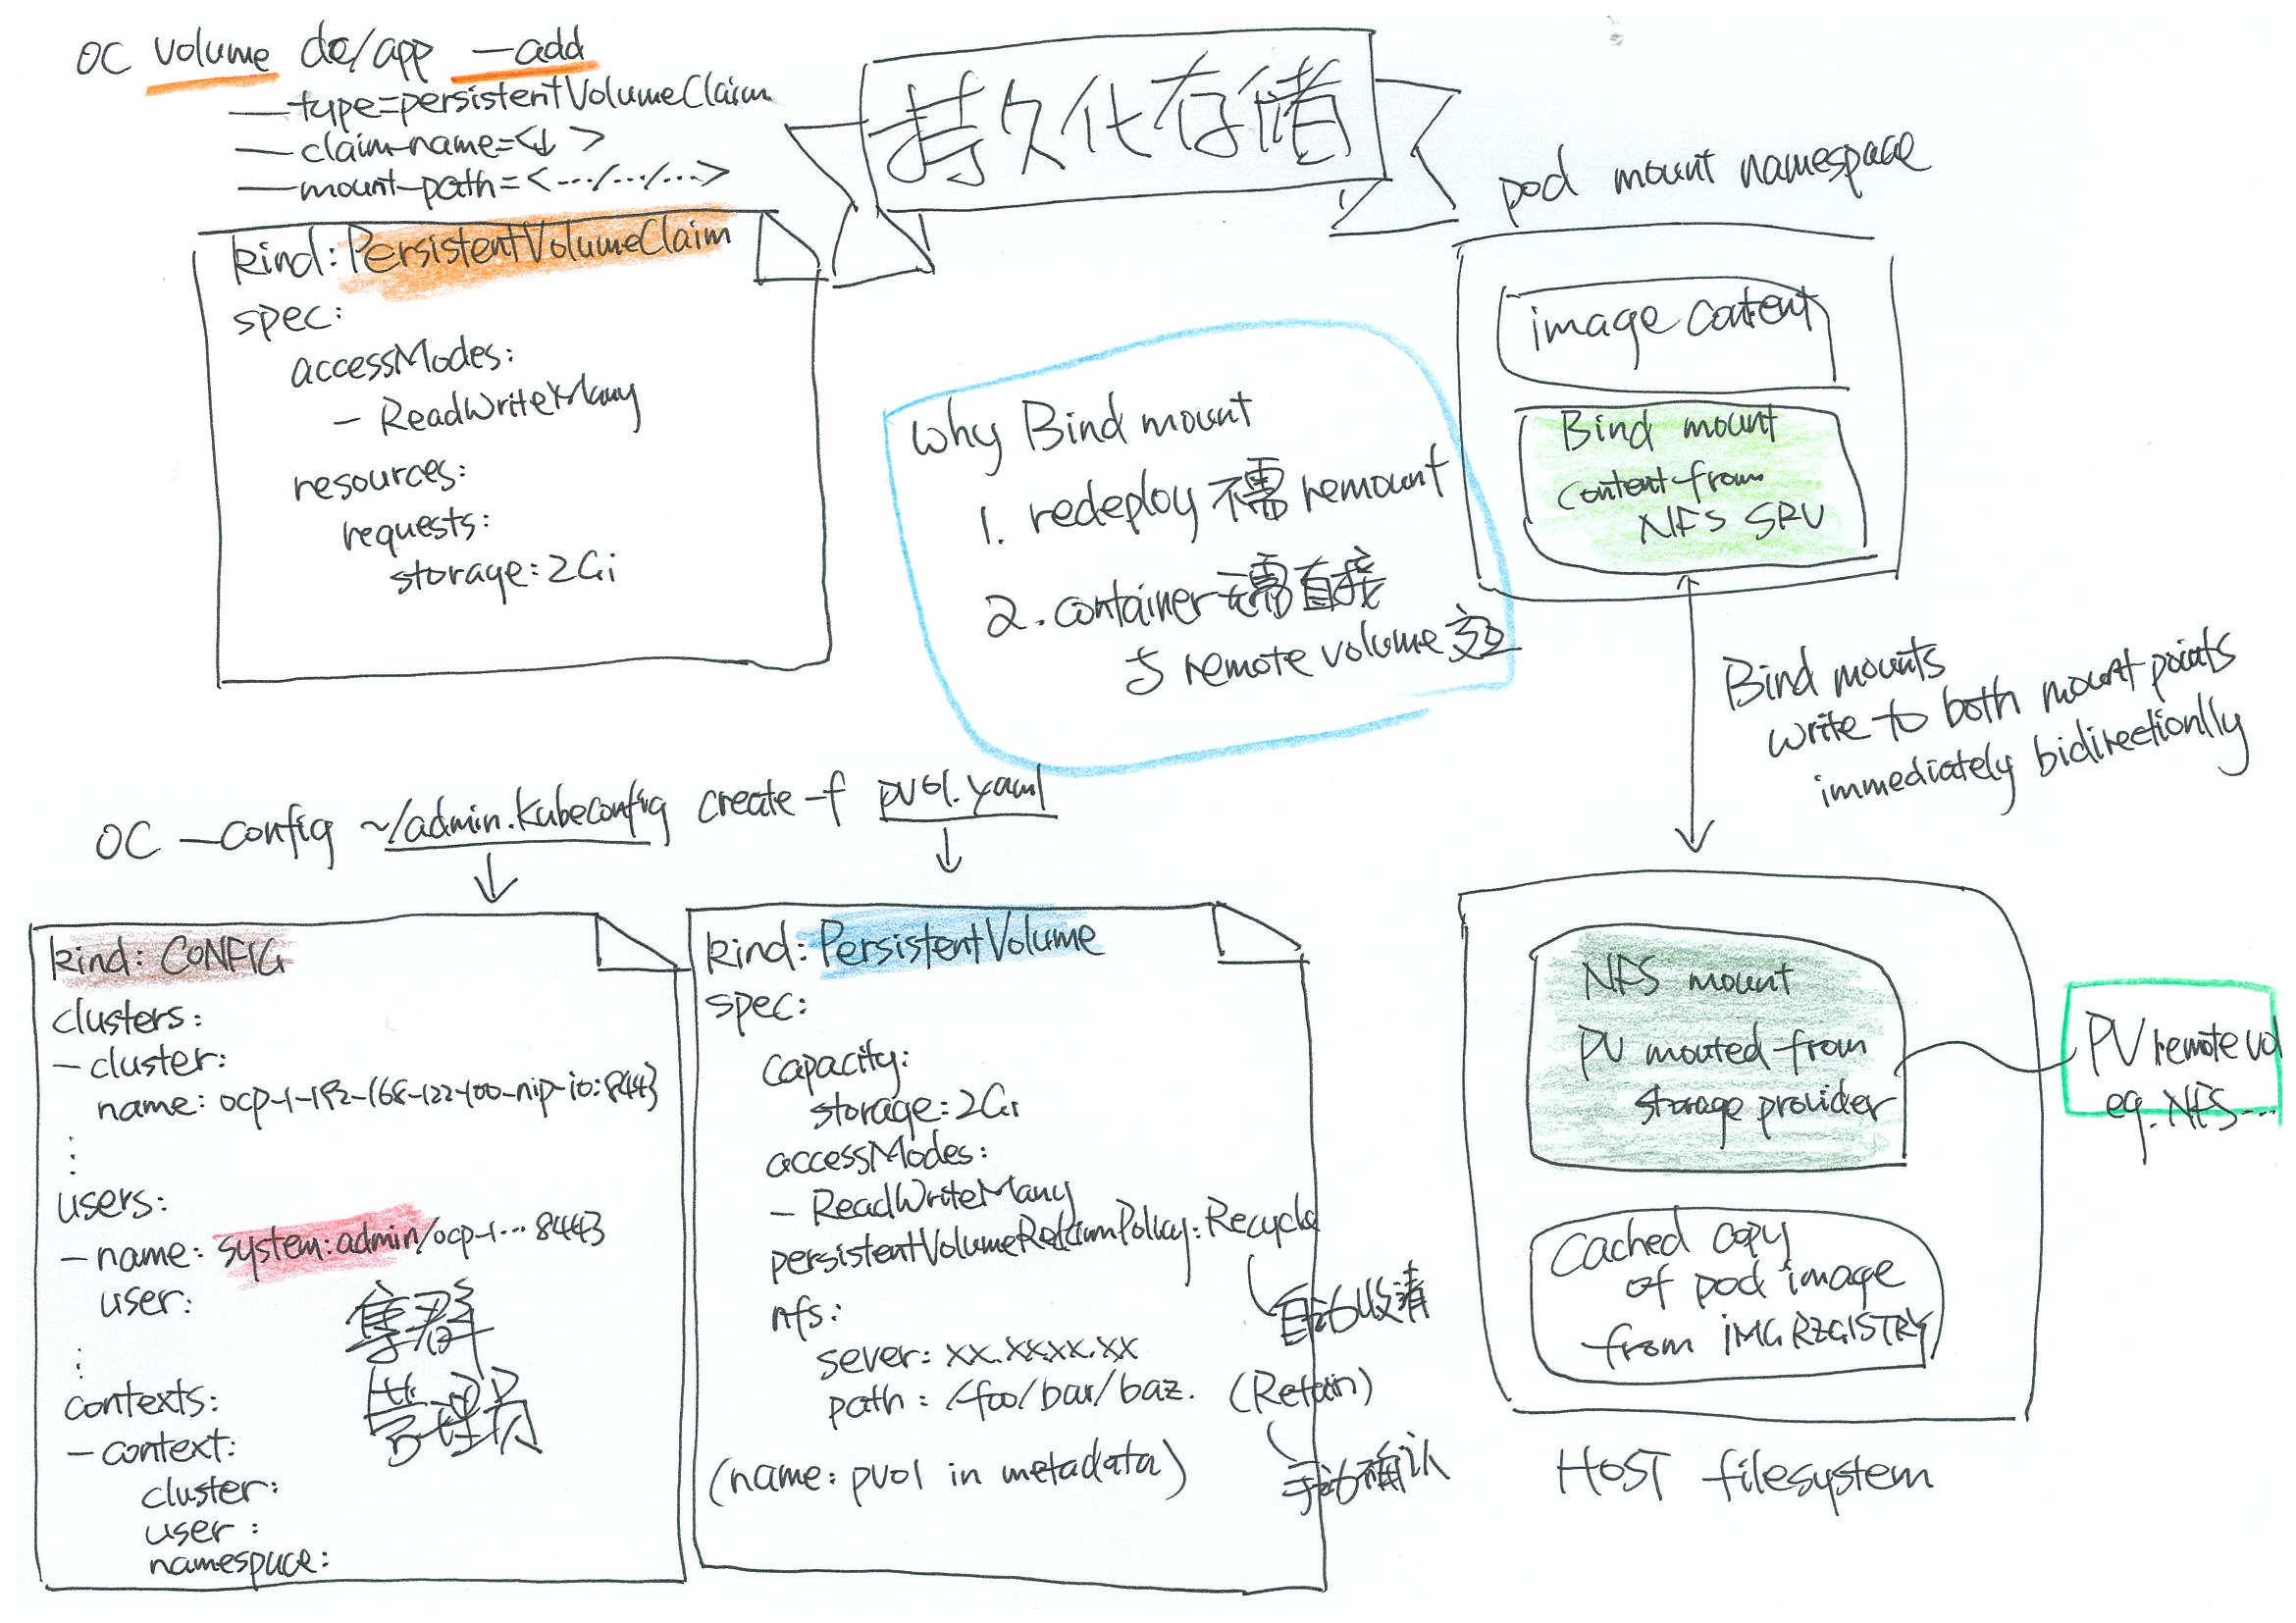 OC volume dc/app —add
—type=persistentVolumeClaim
—claim-name=<↓>
—mount-path=<.../.../...>
持久化存储
kind: PersistentVolumeClaim
spec:
accessModes:
- ReadWriteMany
resources:
requests:
storage: 2Gi
why Bind mount
1. redeploy 不需 remount
2. container 无需直接
与 remote volume 交互
pod mount namespace
image content
Bind mount
content from
NFS SRV
Bind mounts
write to both mount points
immediately bidirectionlly
OC —config ~/admin.kubeconfig create -f pv01.yaml
kind: CONFIG
clusters:
- cluster:
name: ocp-1-192-168-122-100-nip-io:8443
⋮
users:
- name: system:admin/ocp-1...8443
user:
集群
管理员
⋮
contexts:
- context:
cluster:
user:
namespace:
kind: PersistentVolume
spec:
capacity:
storage: 2Gi
accessModes:
- ReadWriteMany
persistentVolumeReclaimPolicy: Recycle
自动收清
nfs:
sever: xx.xx.xx.xx
path: /foo/bar/baz.
(Retain)
手动确认
(name: pv01 in metadata)
NFS mount
PV mouted from
storage provider
PV remote vol
eg. NFS...
Cached copy
of pod image
from IMG REGISTRY
HOST filesystem